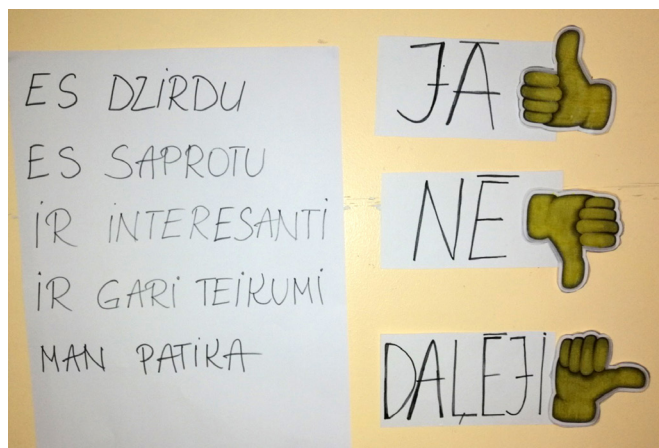 ES DZIRDU
ES SAPROTU
IR INTERESANTI
IR GARI TEIKUMI
MAN PATIKA
JĀ
NĒ
DAĻĒJI